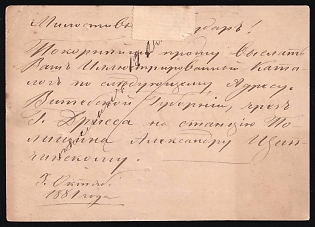 Милостивый Государь!
Покорнейше прошу выслать
Ваш Иллюстрированный Ката
логъ по следующему Адресу.
Витебской Губернiи, чрезъ
г. Дрисса на станцiю
Александру
чинскому.
7. Октяб.
1881 года